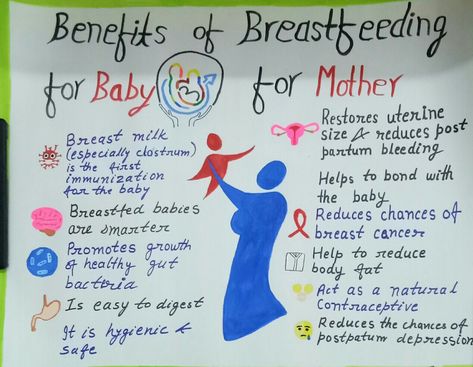 Benefits of Breastfeeding
for Baby
for Mother
Breast milk
(especially clostrum)
is the first
immunization
for the baby
Breastfed babies
are smarter
Promotes growth
of healthy gut
bactoria
Is easy to digest
It is hygienic &
safe
Restores uterine
size & reduces post
partum bleeding
Helps to bond with
the baby
Reduces chances of
breast cancer
Help to reduce
body fat
Act as a natural
Contraceptive
Reduces the chances of
postpatum depression